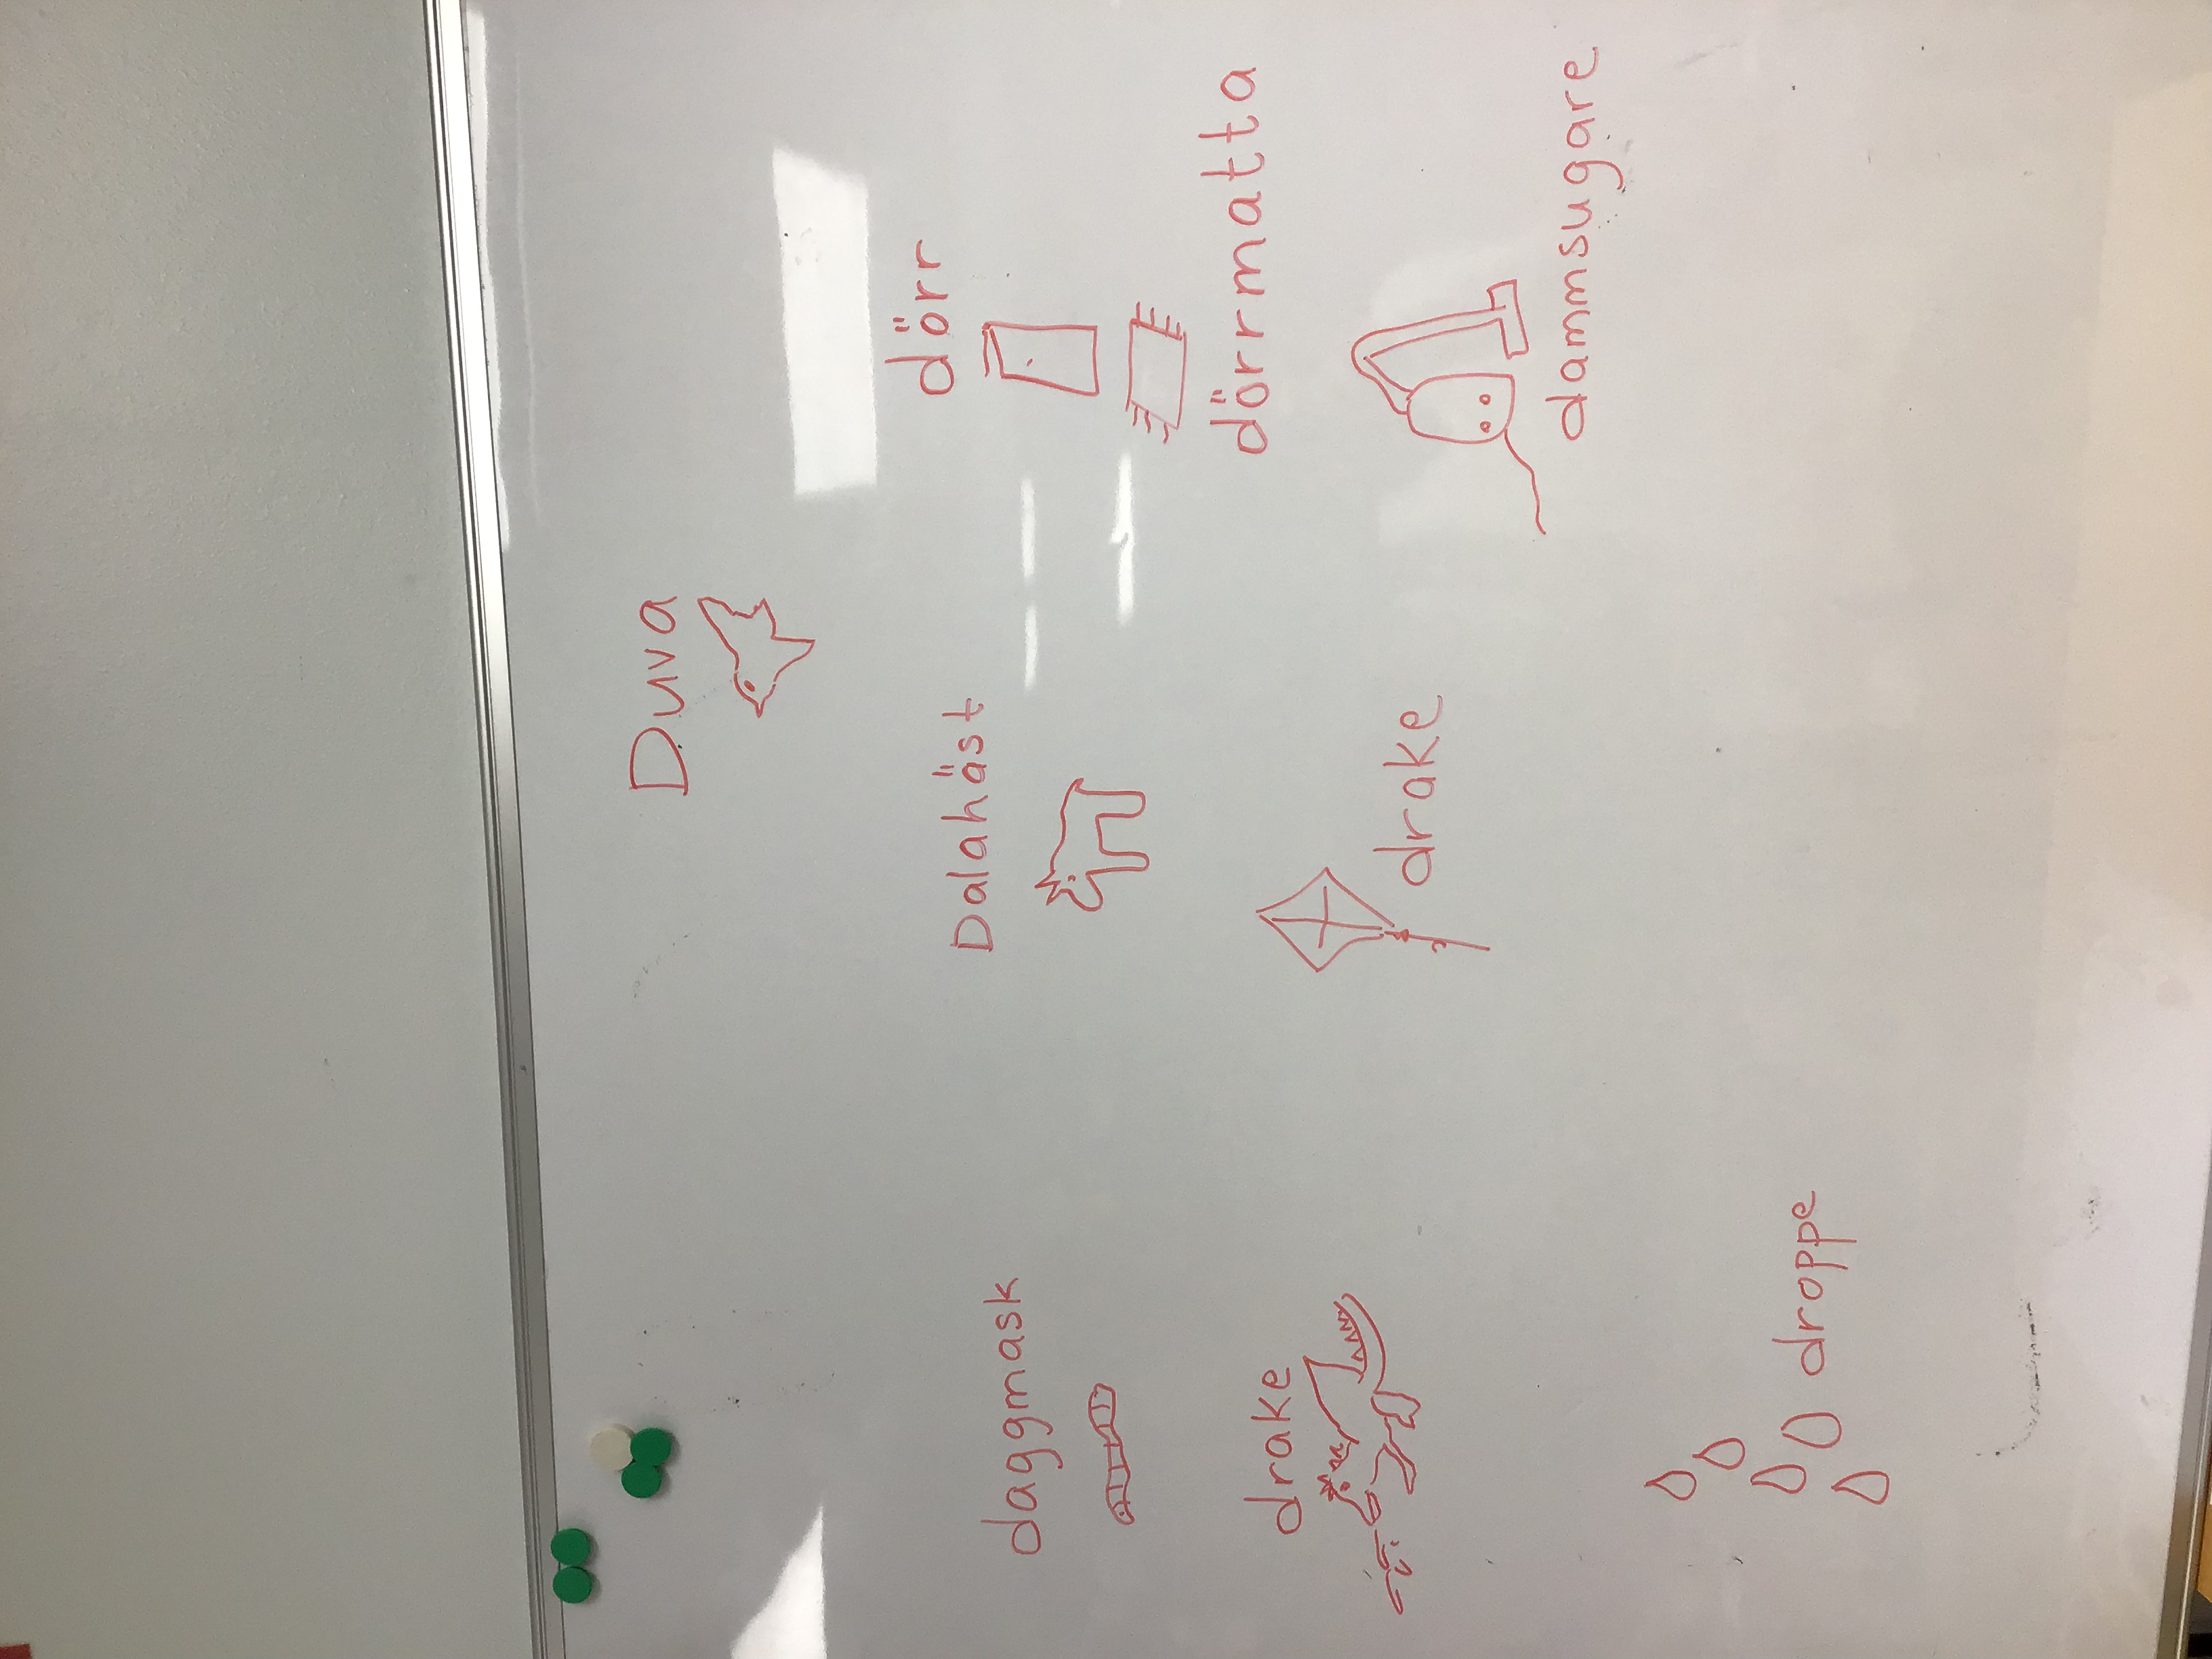 Duva
daggmask
Dalahäst
dörr
drake
drake
dörrmatta
droppe
dammsugare